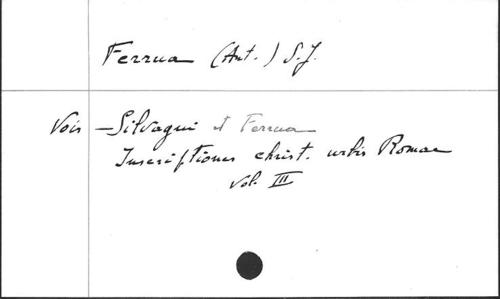 Ferrua (Ant.) S.J.
Vois — Silvagni et Ferrua
Inscriptiones christ. urbis Romae
Vol. III